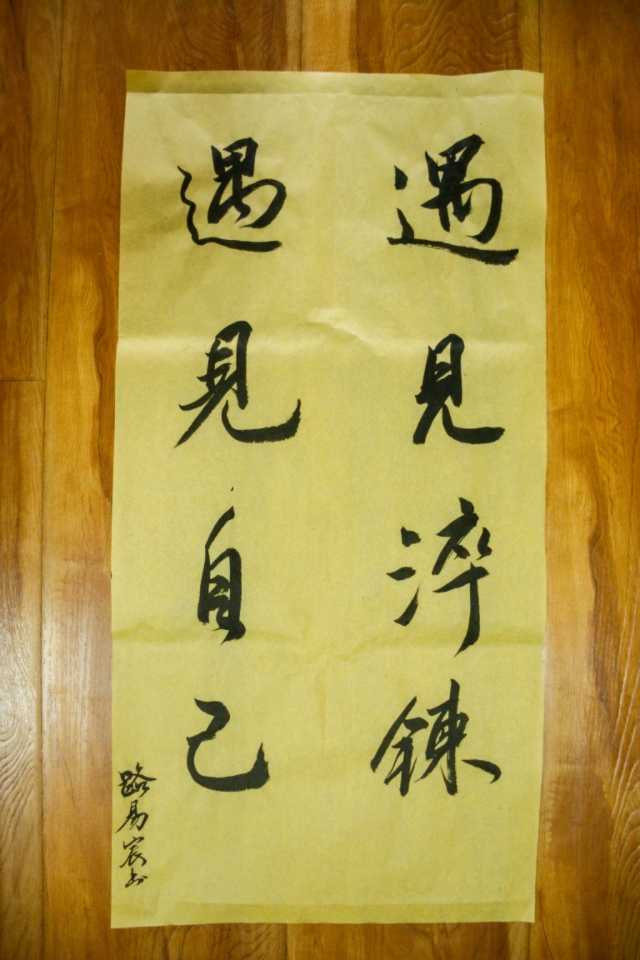 遇見淬鍊
遇見自己
路易宸书